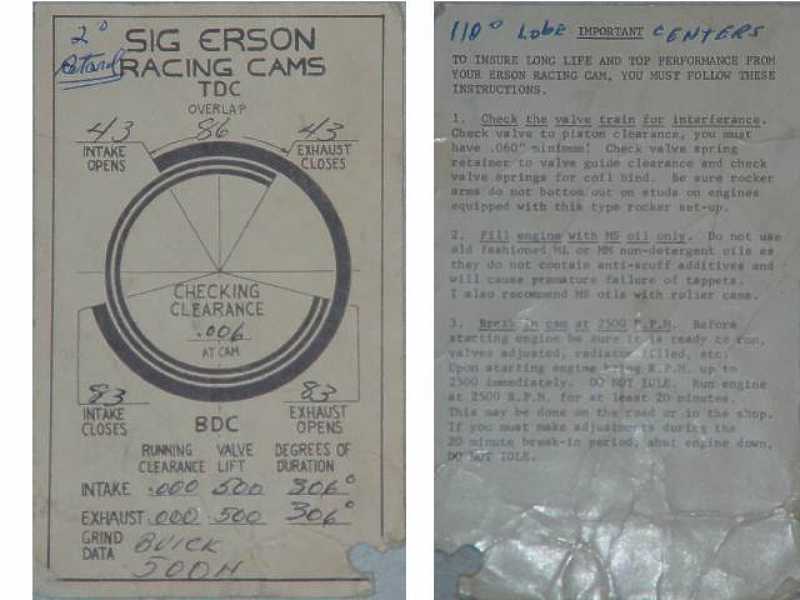 2°
Retard
SIG ERSON
RACING CAMS
TDC
OVERLAP
43 86 43
INTAKE
OPENS
EXHAUST
CLOSES
CHECKING
CLEARANCE
.006
AT CAM
83 83
INTAKE
CLOSES
BDC
EXHAUST
OPENS
RUNNING
CLEARANCE
VALVE
LIFT
DEGREES OF
DURATION
INTAKE .000 500 306°
EXHAUST .000 500 306°
GRIND
DATA
BUICK
500H
110° Lobe IMPORTANT CENTERS
TO INSURE LONG LIFE AND TOP PERFORMANCE FROM
YOUR ERSON RACING CAM, YOU MUST FOLLOW THESE
INSTRUCTIONS.
1. Check the valve train for interferance.
Check valve to piston clearance, you must
have .060" minimum! Check valve spring
retainer to valve guide clearance and check
valve springs for coil bind. Be sure rocker
arms do not bottom out on studs on engines
equipped with this type rocker set-up.
2. Fill engine with MS oil only. Do not use
old fashioned ML or MM non-detergent oils as
they do not contain anti-scuff additives and
will cause premature failure of tappets.
I also recommend MS oils with roller cams.
3. Break in cam at 2500 R.P.M. Before
starting engine be sure it is ready to run,
valves adjusted, radiator filled, etc.
Upon starting engine bring R.P.M. up to
2500 immediately. DO NOT IDLE. Run engine
at 2500 R.P.M. for at least 20 minutes.
This may be done on the road or in the shop.
If you must make adjustments during the
20 minute break-in period, shut engine down,
DO NOT IDLE.